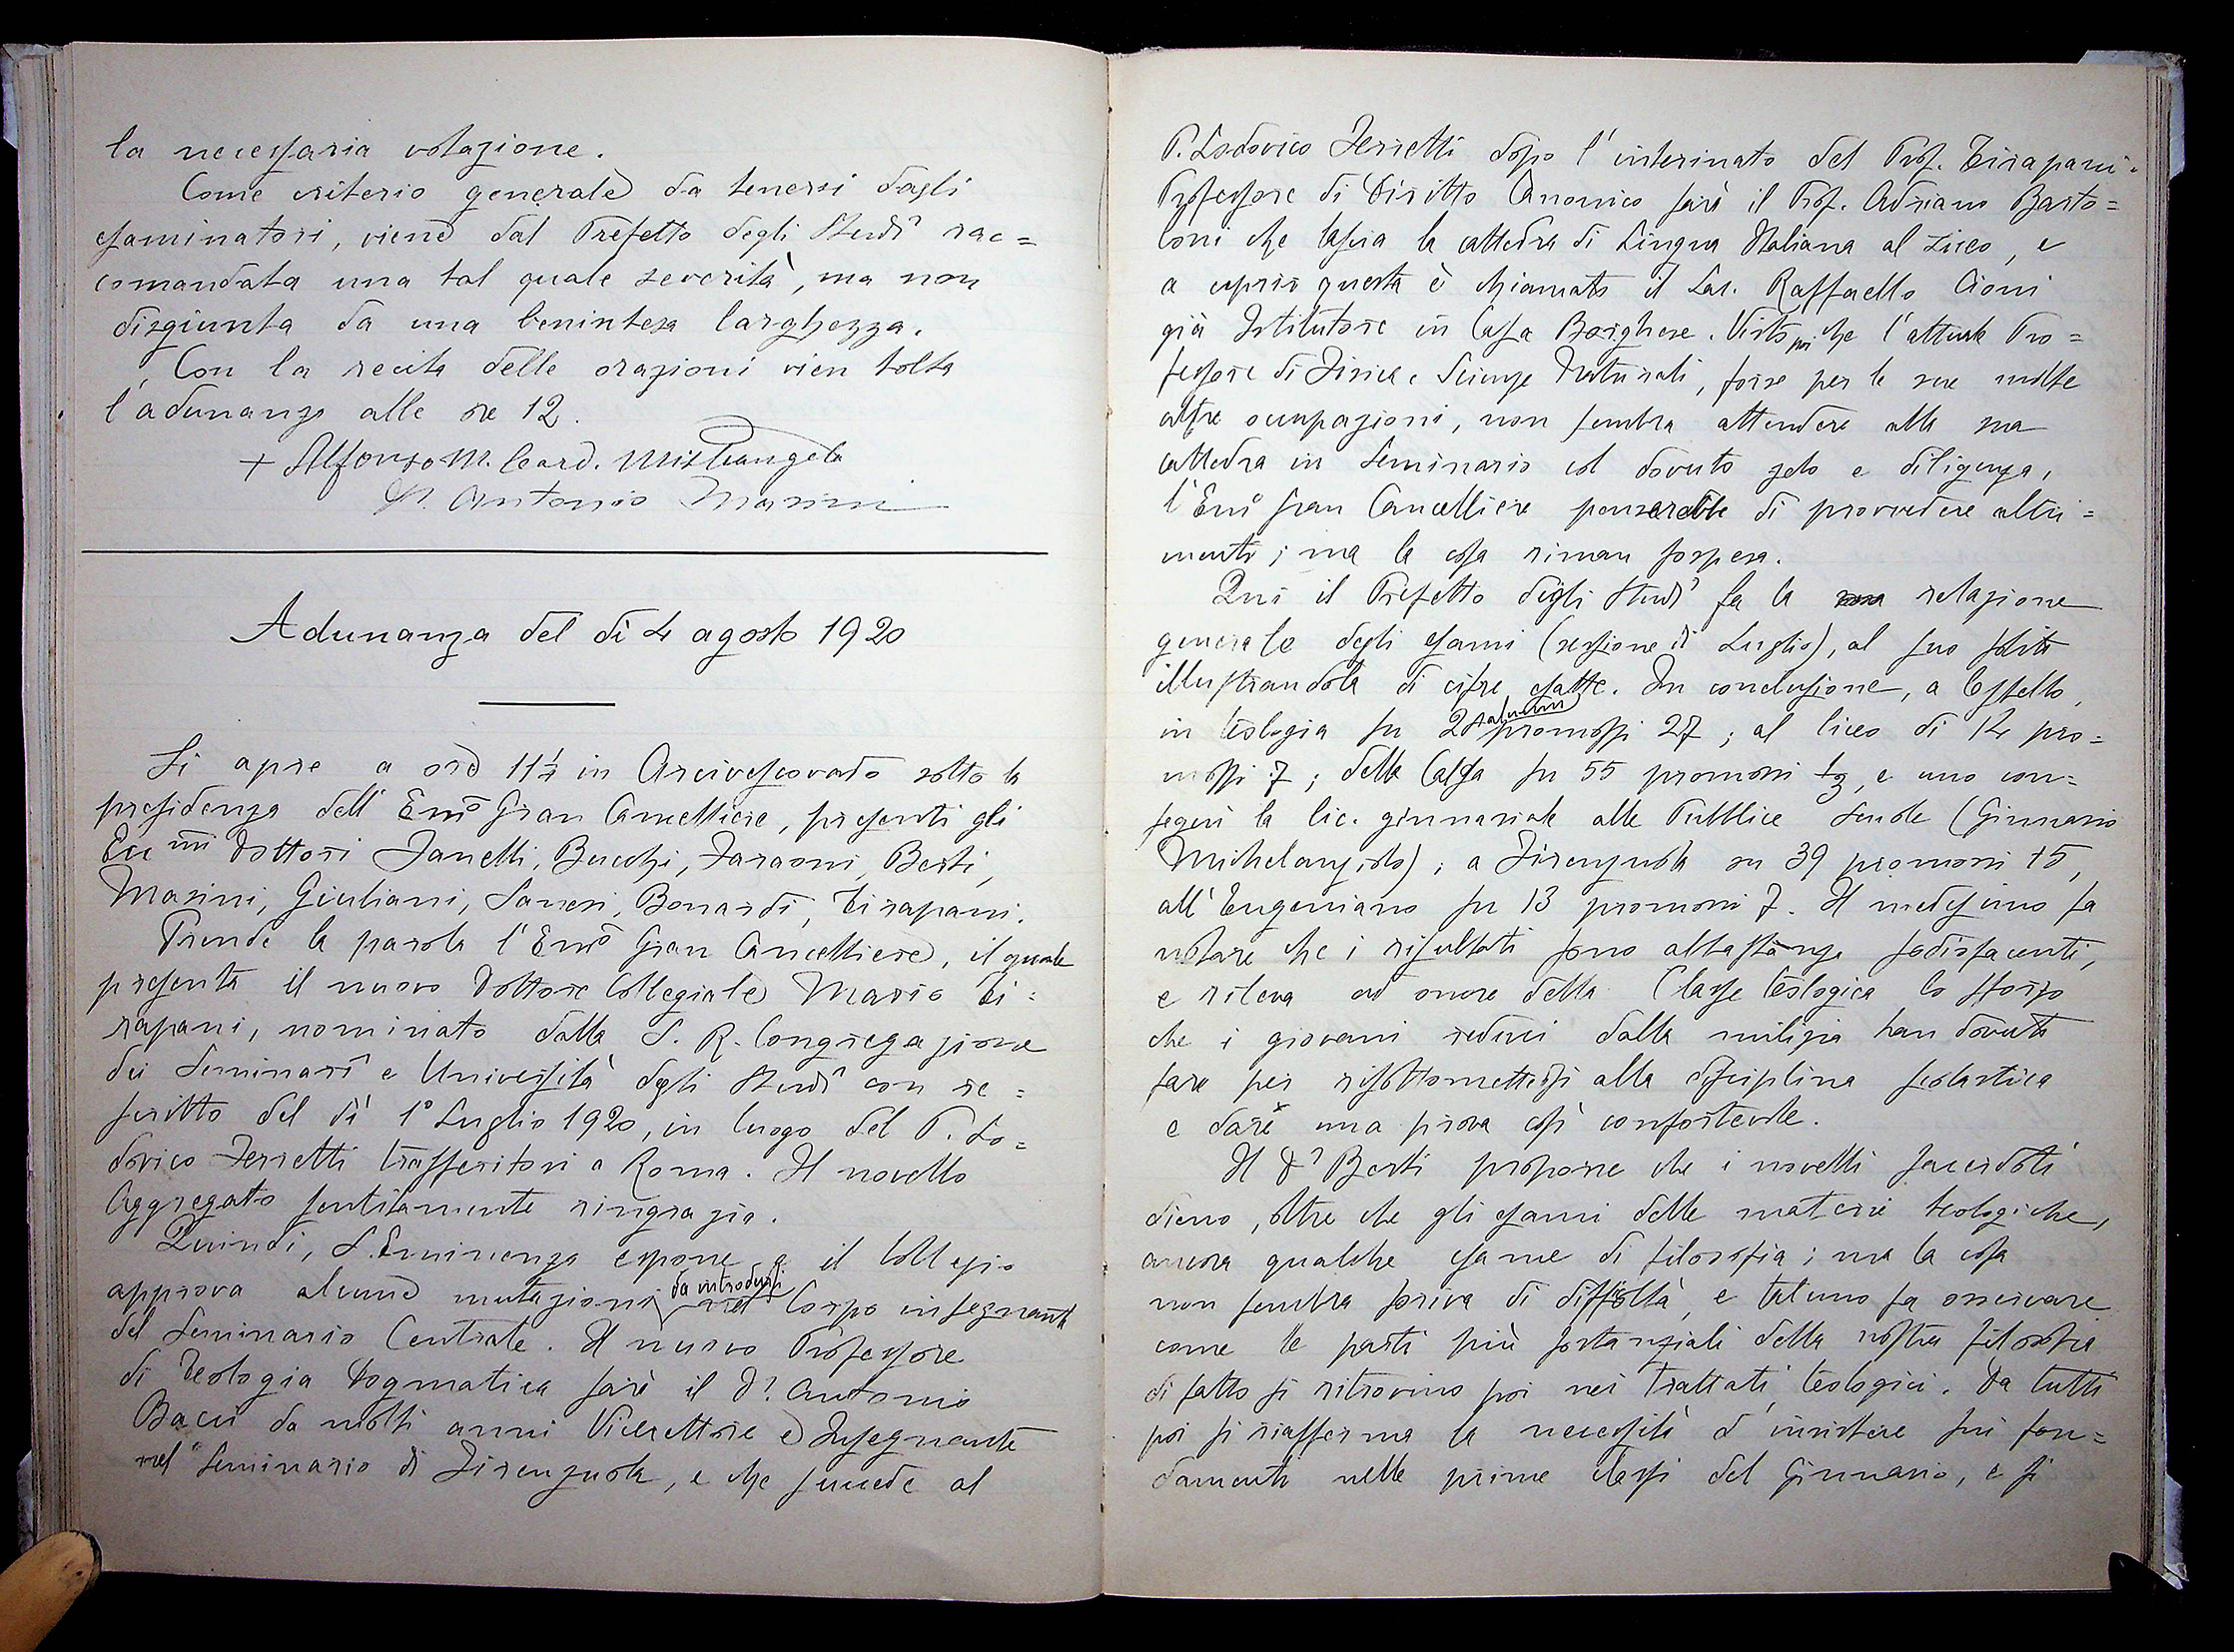 la necessaria votazione.
Come criterio generale da tenersi dagli
esaminatori, viene dal Prefetto degli Studî rac=
comandata una tal quale severità, ma non
disgiunta da una benintesa larghezza.
Con la recita delle orazioni vien tolta
l'adunanza alle ore 12.
+ Alfonso M. Card. Mistrangelo
Antonio Marini
Adunanza del dì 4 agosto 1920
Si apre a ore 11½ in Arcivescovado sotto la
presidenza dell'Emo Gran Cancelliere, presenti gli
Eccmi Dottori Fanelli, Bucchi, Faraoni, Berti,
Marini, Giuliani, Sanesi, Bonardi, Tirapani.
Prende la parola l'Emo Gran Cancelliere, il quale
presenta il nuovo Dottore Collegiale Mario Ti=
rapani, nominato dalla S. R. Congregazione
dei Seminarî e Università degli Studî con re=
scritto del dì 1º Luglio 1920, in luogo del P. Lo=
dovico Ferretti trasferitosi a Roma. Il novello
Aggregato sentitamente ringrazia.
Quindi, S. Eminenza espone e il Collegio
approva alcune mutazioni da introdursi nel Corpo insegnante
del Seminario Centrale. Il nuovo Professore
di Teologia Dogmatica sarà il D.r Antonio
Bacci da molti anni Vicerettore e Insegnante
nel Seminario di Firenzuola, e che succede al
P. Lodovico Ferretti dopo l'interinato del Prof. Tirapani.
Professore di Diritto Canonico sarà il Prof. Adriano Barto=
loni che lascia la cattedra di Lingua Italiana al Liceo, e
a coprir questa è chiamato il Sac. Raffaello Cioni
già Istitutore in Casa Borghese. Visto poi che l'attuale Pro=
fessore di Fisica e Scienze Naturali, forse per le sue molte
altre occupazioni, non sembra attendere alla sua
cattedra in Seminario col dovuto zelo e diligenza,
l'Emo Gran Cancelliere penserebbe di provvedere altri=
menti; ma la cosa riman sospesa.
Qui il Prefetto degli Studî fa la relazione
generale degli esami (sessione di Luglio), al suo solito
illustrandola di cifre esatte. In conclusione, a Cestello,
in teologia su 28 alunni promossi 27; al liceo di 12 pro=
mossi 7; della Calza su 55 promossi 13, e uno con=
seguì la lic. ginnasiale alle Pubbliche Scuole (Ginnasio
Michelangiolo); a Firenzuola su 39 promossi 15,
all'Eugeniano su 13 promossi 7. Il medesimo fa
notare che i risultati sono abbastanza sodisfacenti,
e rileva ad onore della Classe teologica lo sforzo
che i giovani reduci dalla milizia han dovuto
fare per risottomettersi alla disciplina scolastica
e dare una prova così confortevole.
Il D.r Berti propone che i novelli sacerdoti
dieno, oltre che gli esami delle materie teologiche,
ancora qualche esame di filosofia; ma la cosa
non sembra priva di difficoltà, e taluno fa osservare
come le parti più sostanziali della nostra filosofia
di fatto si ritrovino poi nei trattati teologici. Da tutti
poi si riafferma la necessità d'insistere sui fon=
damenti nelle prime classi del Ginnasio, e si